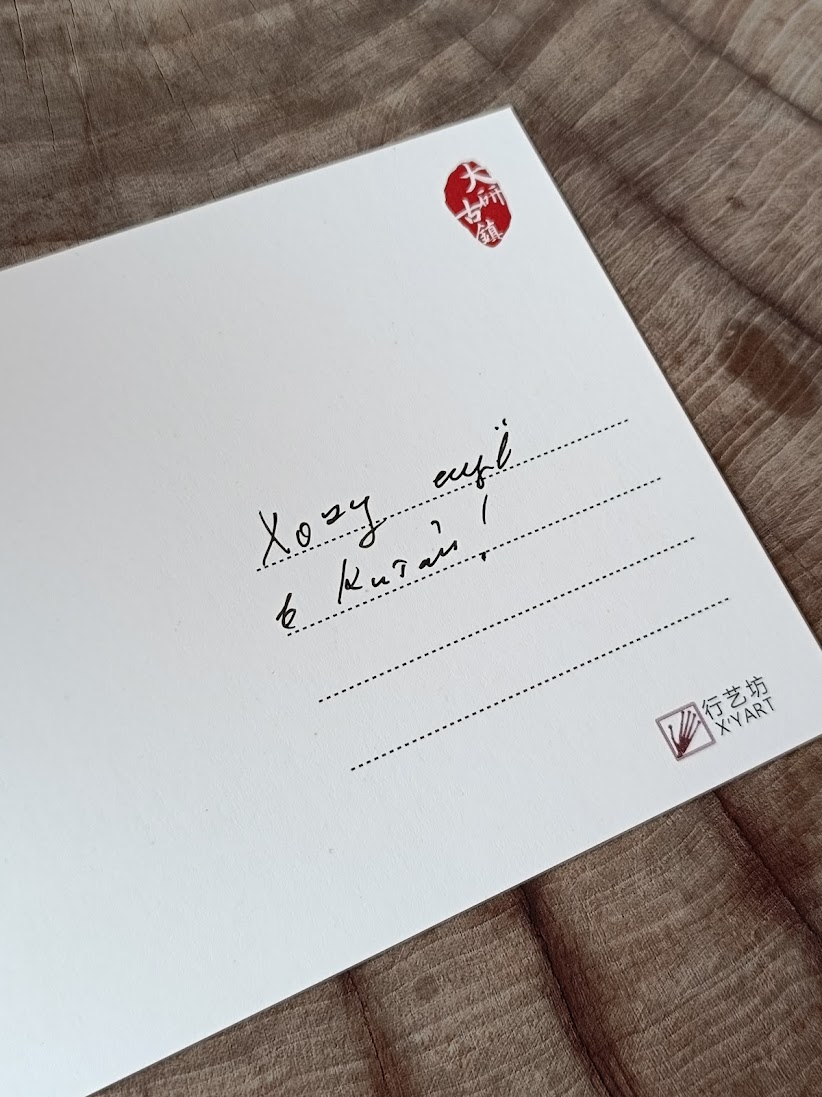 大研古鎮
Хочу ещё
в Китай!
行艺坊
X'YART